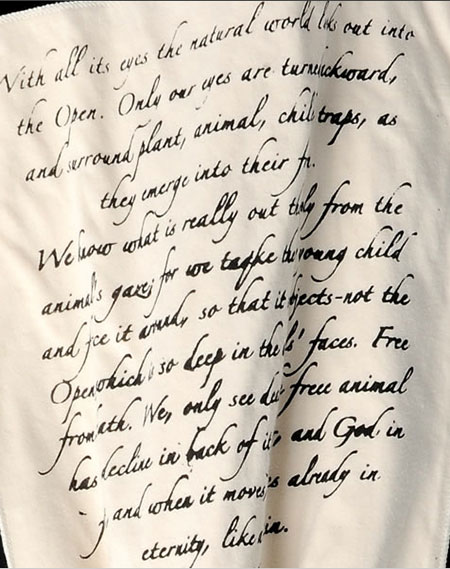 With all its eyes the natural world out into
the Open. Only our eyes are
and surround plant, animal, traps, as
they emerge into their
We what is really out from the
animal's gaze; for we the young child
and it so that it not the
Open, which is so deep in the faces. Free
from We, only see free animal
has decline in back of it, and God in
and when it moves already in
eternity, like